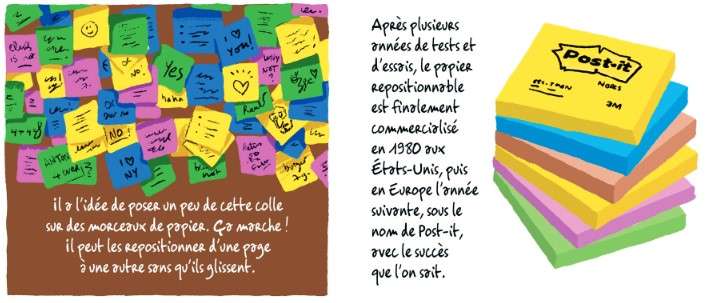 I ♡
you!
Yes
haha
NO!
I ♡
NY
il a l'idée de poser un peu de cette colle
sur des morceaux de papier. Ça marche !
il peut les repositionner d'une page
à une autre sans qu'ils glissent.
Après plusieurs
années de tests et
d'essais, le papier
repositionnable
est finalement
commercialisé
en 1980 aux
États-Unis, puis
en Europe l'année
suivante, sous le
nom de Post-it,
avec le succès
que l'on sait.
Post-it
NOTES
3M